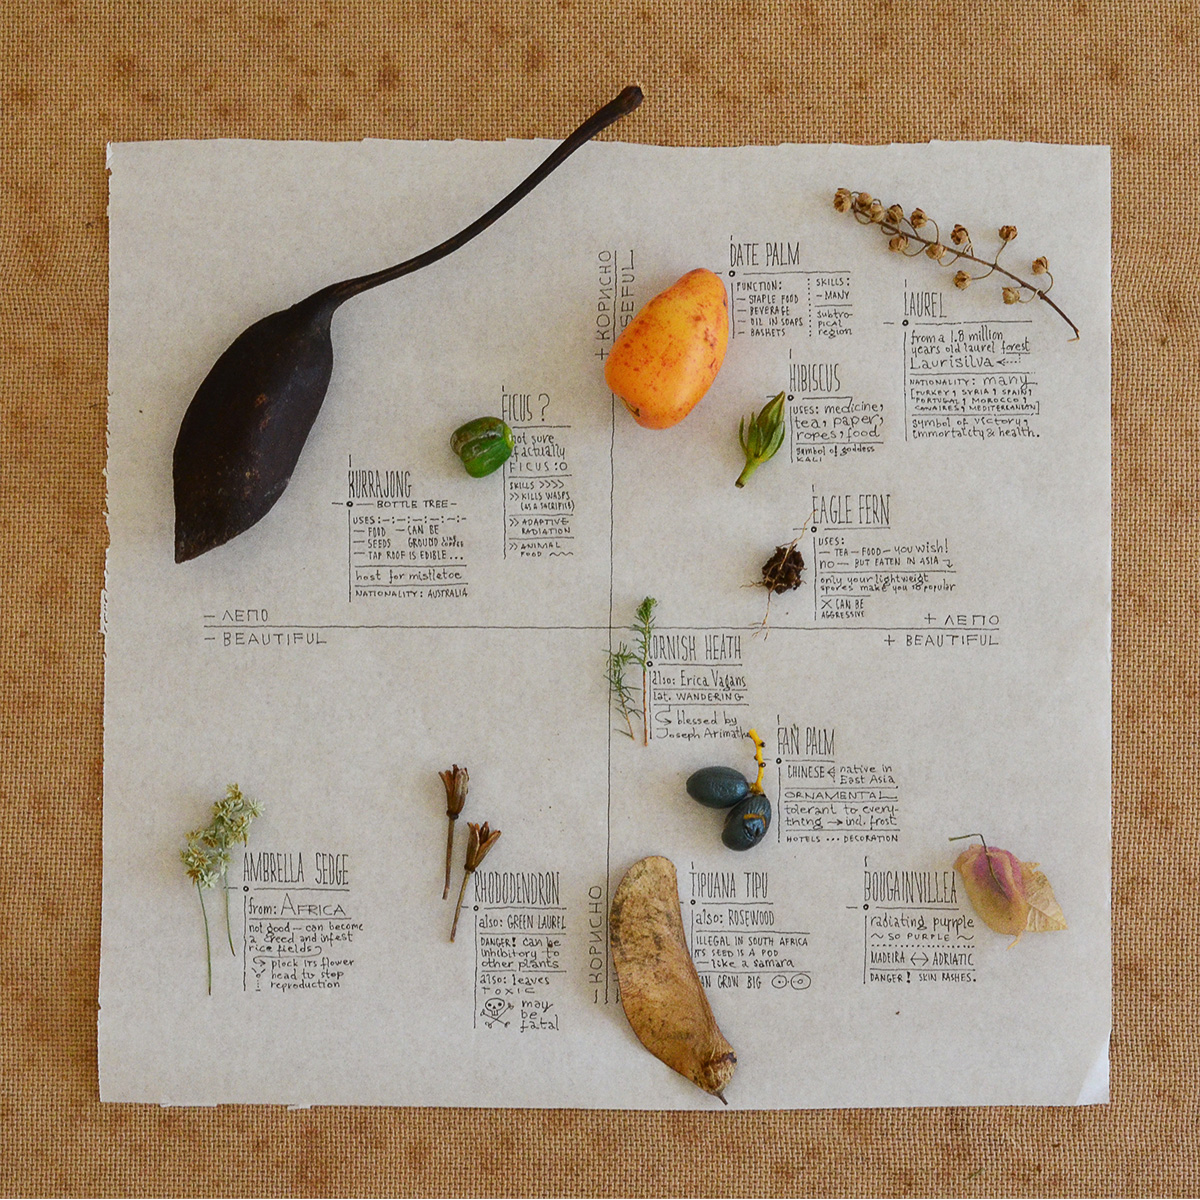 + КОРИСНО
SEFUL
DATE PALM
FUNCTION:
– STAPLE FOOD
– BEVERAGE
– OIL IN SOAPS
– BASHETS
SKILLS:
– MANY
subtro-
pical
region
LAUREL
from a 1.8 million
years old laurel forest
Laurisilva
NATIONALITY: many
[TURKEY, SYRIA, SPAIN,
PORTUGAL, MOROCCO,
CANAIRES, MEDITERRANEAN]
symbol of victory,
immortality & health.
HIBISCUS
USES: medicine,
tea, paper,
ropes, food
symbol of goddess
KALI
FICUS ?
not sure
if actually
FICUS :O
SKILLS >>>>
>> KILLS WASPS
(AS A SACRIFICE)
>> ADAPTIVE
RADIATION
>> ANIMAL
FOOD
KURRAJONG
— BOTTLE TREE —
USES: -:-:-:-:-:-
– FOOD
– SEEDS
– CAN BE
GROUND LIKE COFFEE
– TAP ROOF IS EDIBLE...
host for mistletoe
NATIONALITY: AUSTRALIA
EAGLE FERN
USES:
– TEA – FOOD – YOU WISH!
no – BUT EATEN IN ASIA
only your lightweight
spores make you so popular
X CAN BE
AGGRESSIVE
– ЛЕПО
– BEAUTIFUL
+ ЛЕПО
+ BEAUTIFUL
CORNISH HEATH
also: Erica Vagans
lat. WANDERING
blessed by
Joseph Arimathe
FAN PALM
CHINESE
native in
East Asia
ORNAMENTAL
tolerant to every-
thing → incl. frost
HOTELS ... DECORATION
AMBRELLA SEDGE
from: AFRICA
not good – can become
a creed and infest
rice fields
plock its flower
head to stop
reproduction
RHODODENDRON
also: GREEN LAUREL
DANGER! can be
inhibitory to
other plants
also: leaves
TOXIC
may
be
fatal
– КОРИСНО
TIPUANA TIPU
also: ROSEWOOD
ILLEGAL IN SOUTH AFRICA
ITS SEED IS A POD
– like a samara
CAN GROW BIG
BOUGAINVILLEA
radiating purple
~ SO PURPLE ~
MADEIRA ↔ ADRIATIC
DANGER! SKIN RASHES.